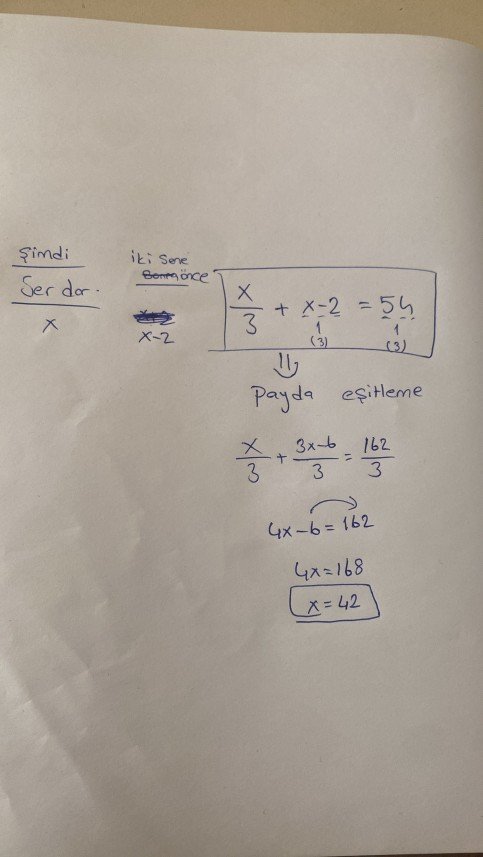 Şimdi
Serdar.
x
iki sene
önce
x-2
x/3 + x-2 = 54
1 1
(3) (3)
Payda eşitleme
x/3 + 3x-6/3 = 162/3
4x-6=162
4x=168
x=42